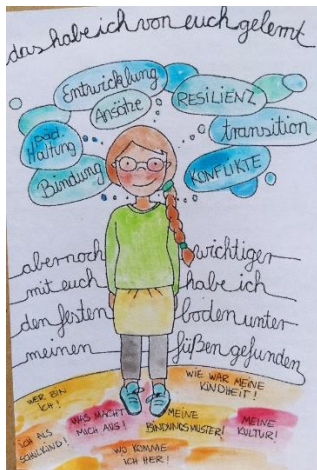 das habe ich von euch gelernt
Entwicklung
Ansätze
RESILIENZ
päd.
Haltung
transition
Bindung
KONFLIKTE
aber noch wichtiger
mit euch habe ich
den festen boden unter
meinen füßen gefunden
WER BIN
ICH!
WAS MACHT
MICH AUS!
WIE WAR MEINE
KINDHEIT!
ICH ALS
SCHULKIND!
MEINE
BINDUNGSMUSTER!
MEINE
KULTUR!
WO KOMME
ICH HER!